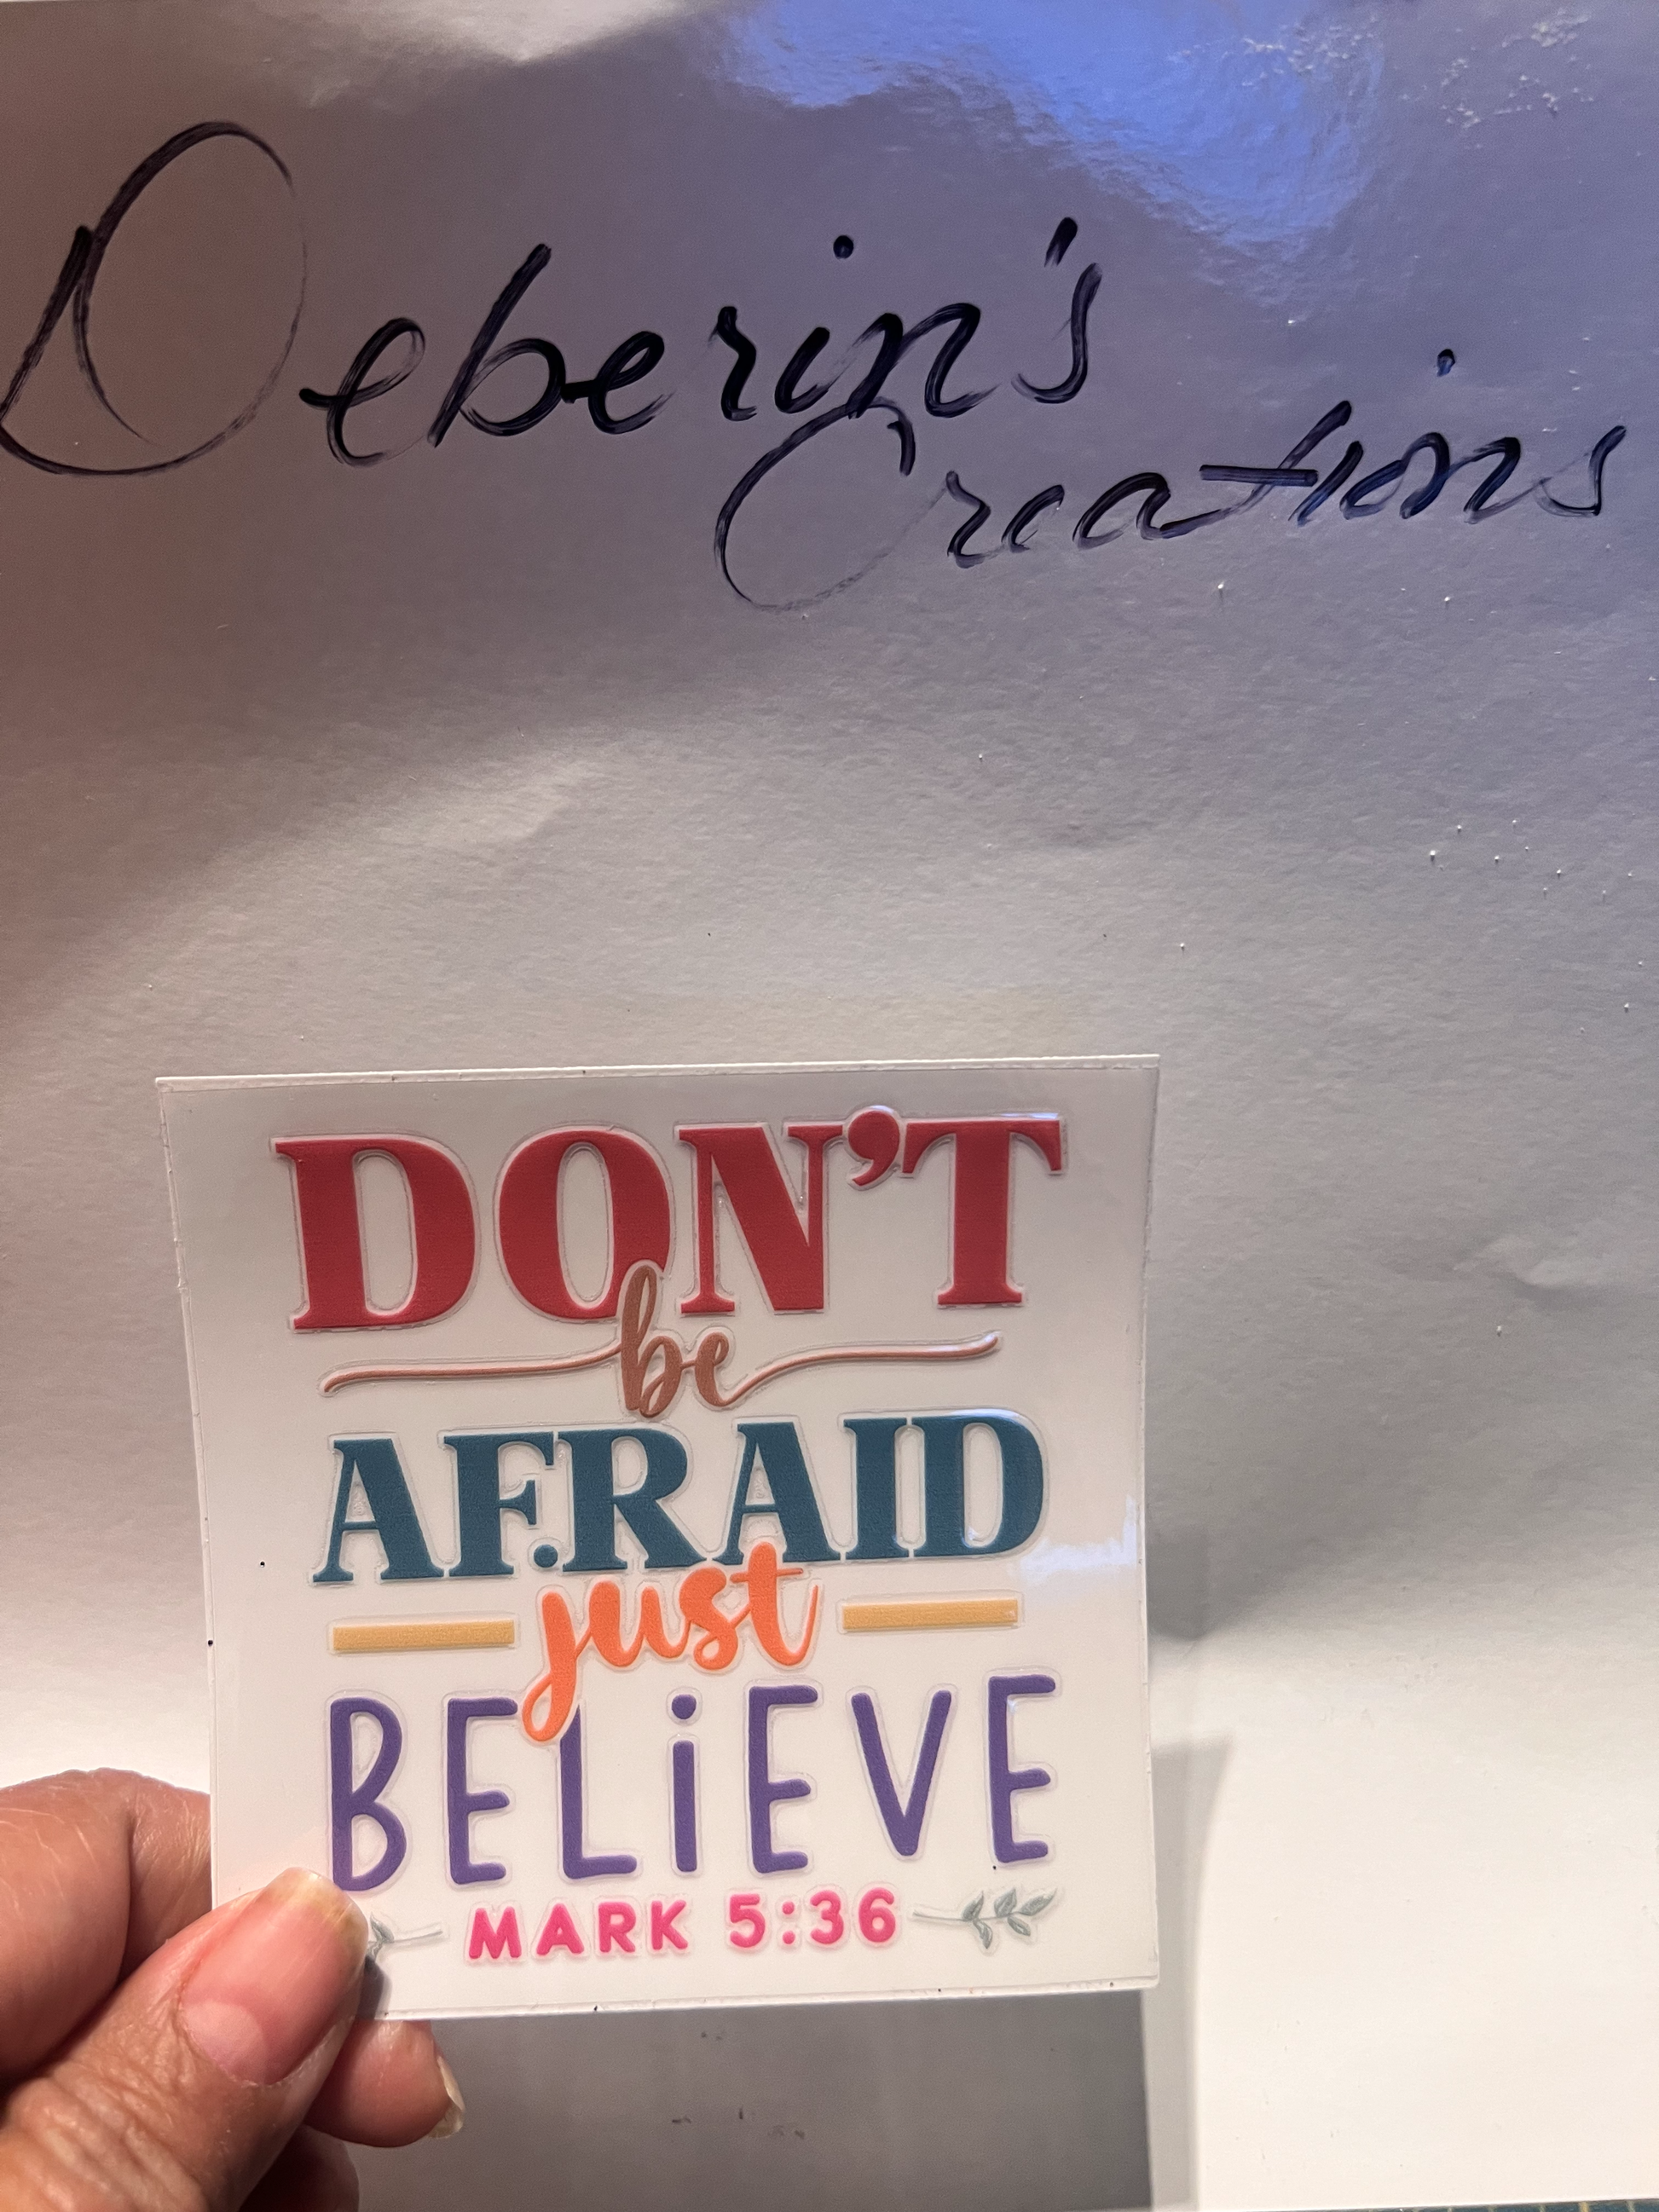 Deberin's
Creations
DON'T
be
AFRAID
just
BELiEVE
MARK 5:36